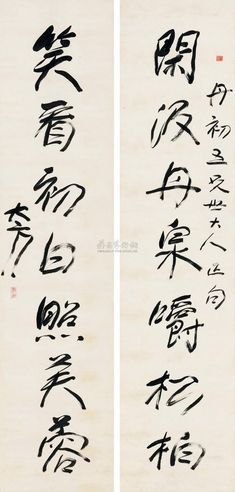 丹初五兄世大人正句
閑汲丹泉嚼松柏
笑看初日照芙蓉
大方